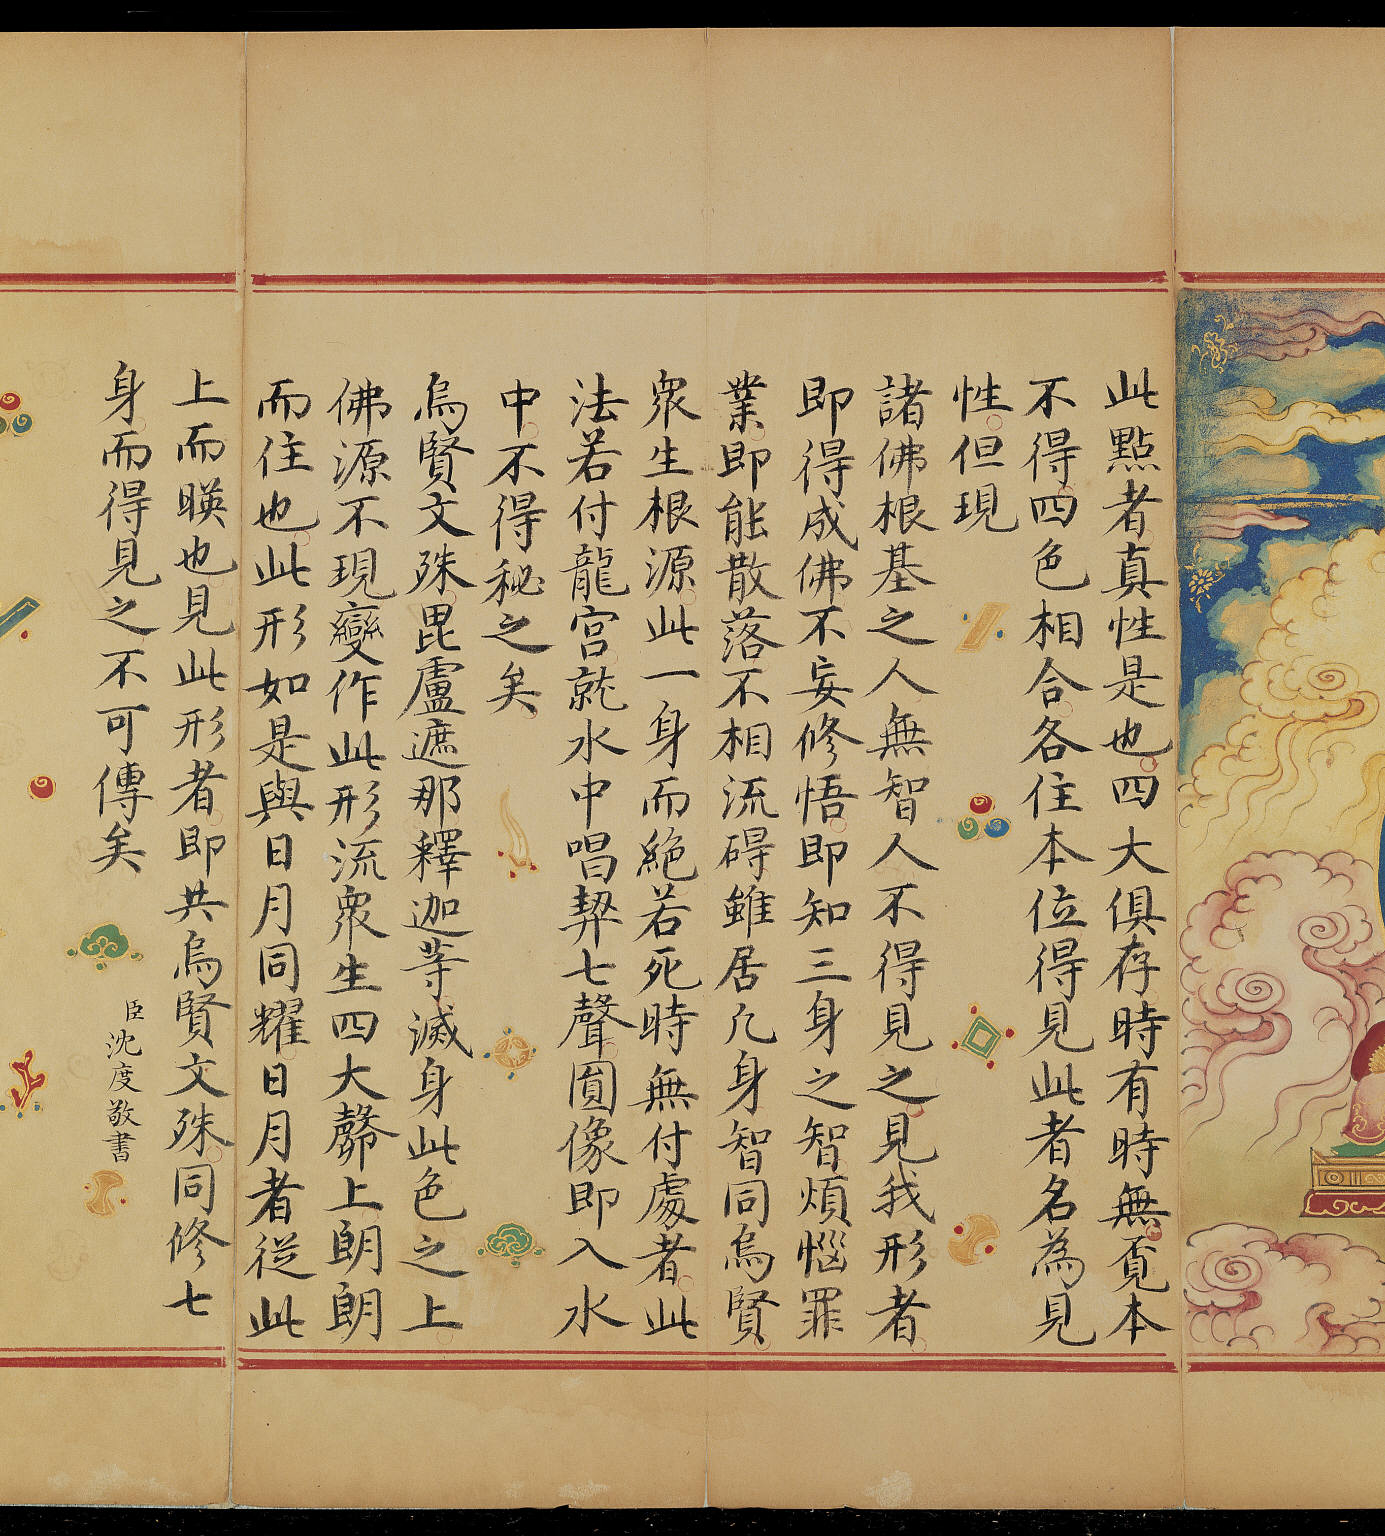 此點者真性是也四大俱存時有時無覔本
不得四色相合各住本位得見此者名為見
性但現
諸佛根基之人無智人不得見之見我形者
即得成佛不妄修悟即知三身之智煩惱罪
業即能散落不相流碍雖居凢身智同烏賢
衆生根源此一身而絕若死時無付處者此
法若付龍宮就水中唱契七聲圎像即入水
中不得秘之矣
烏賢文殊毘盧遮那釋迦等滅身此色之上
佛源不現變作此形流衆生四大臍上朗朗
而住也此形如是與日月同耀日月者從此
上而暎也見此形者即共烏賢文殊同修七
身而得見之不可傳矣
臣沈度敬書